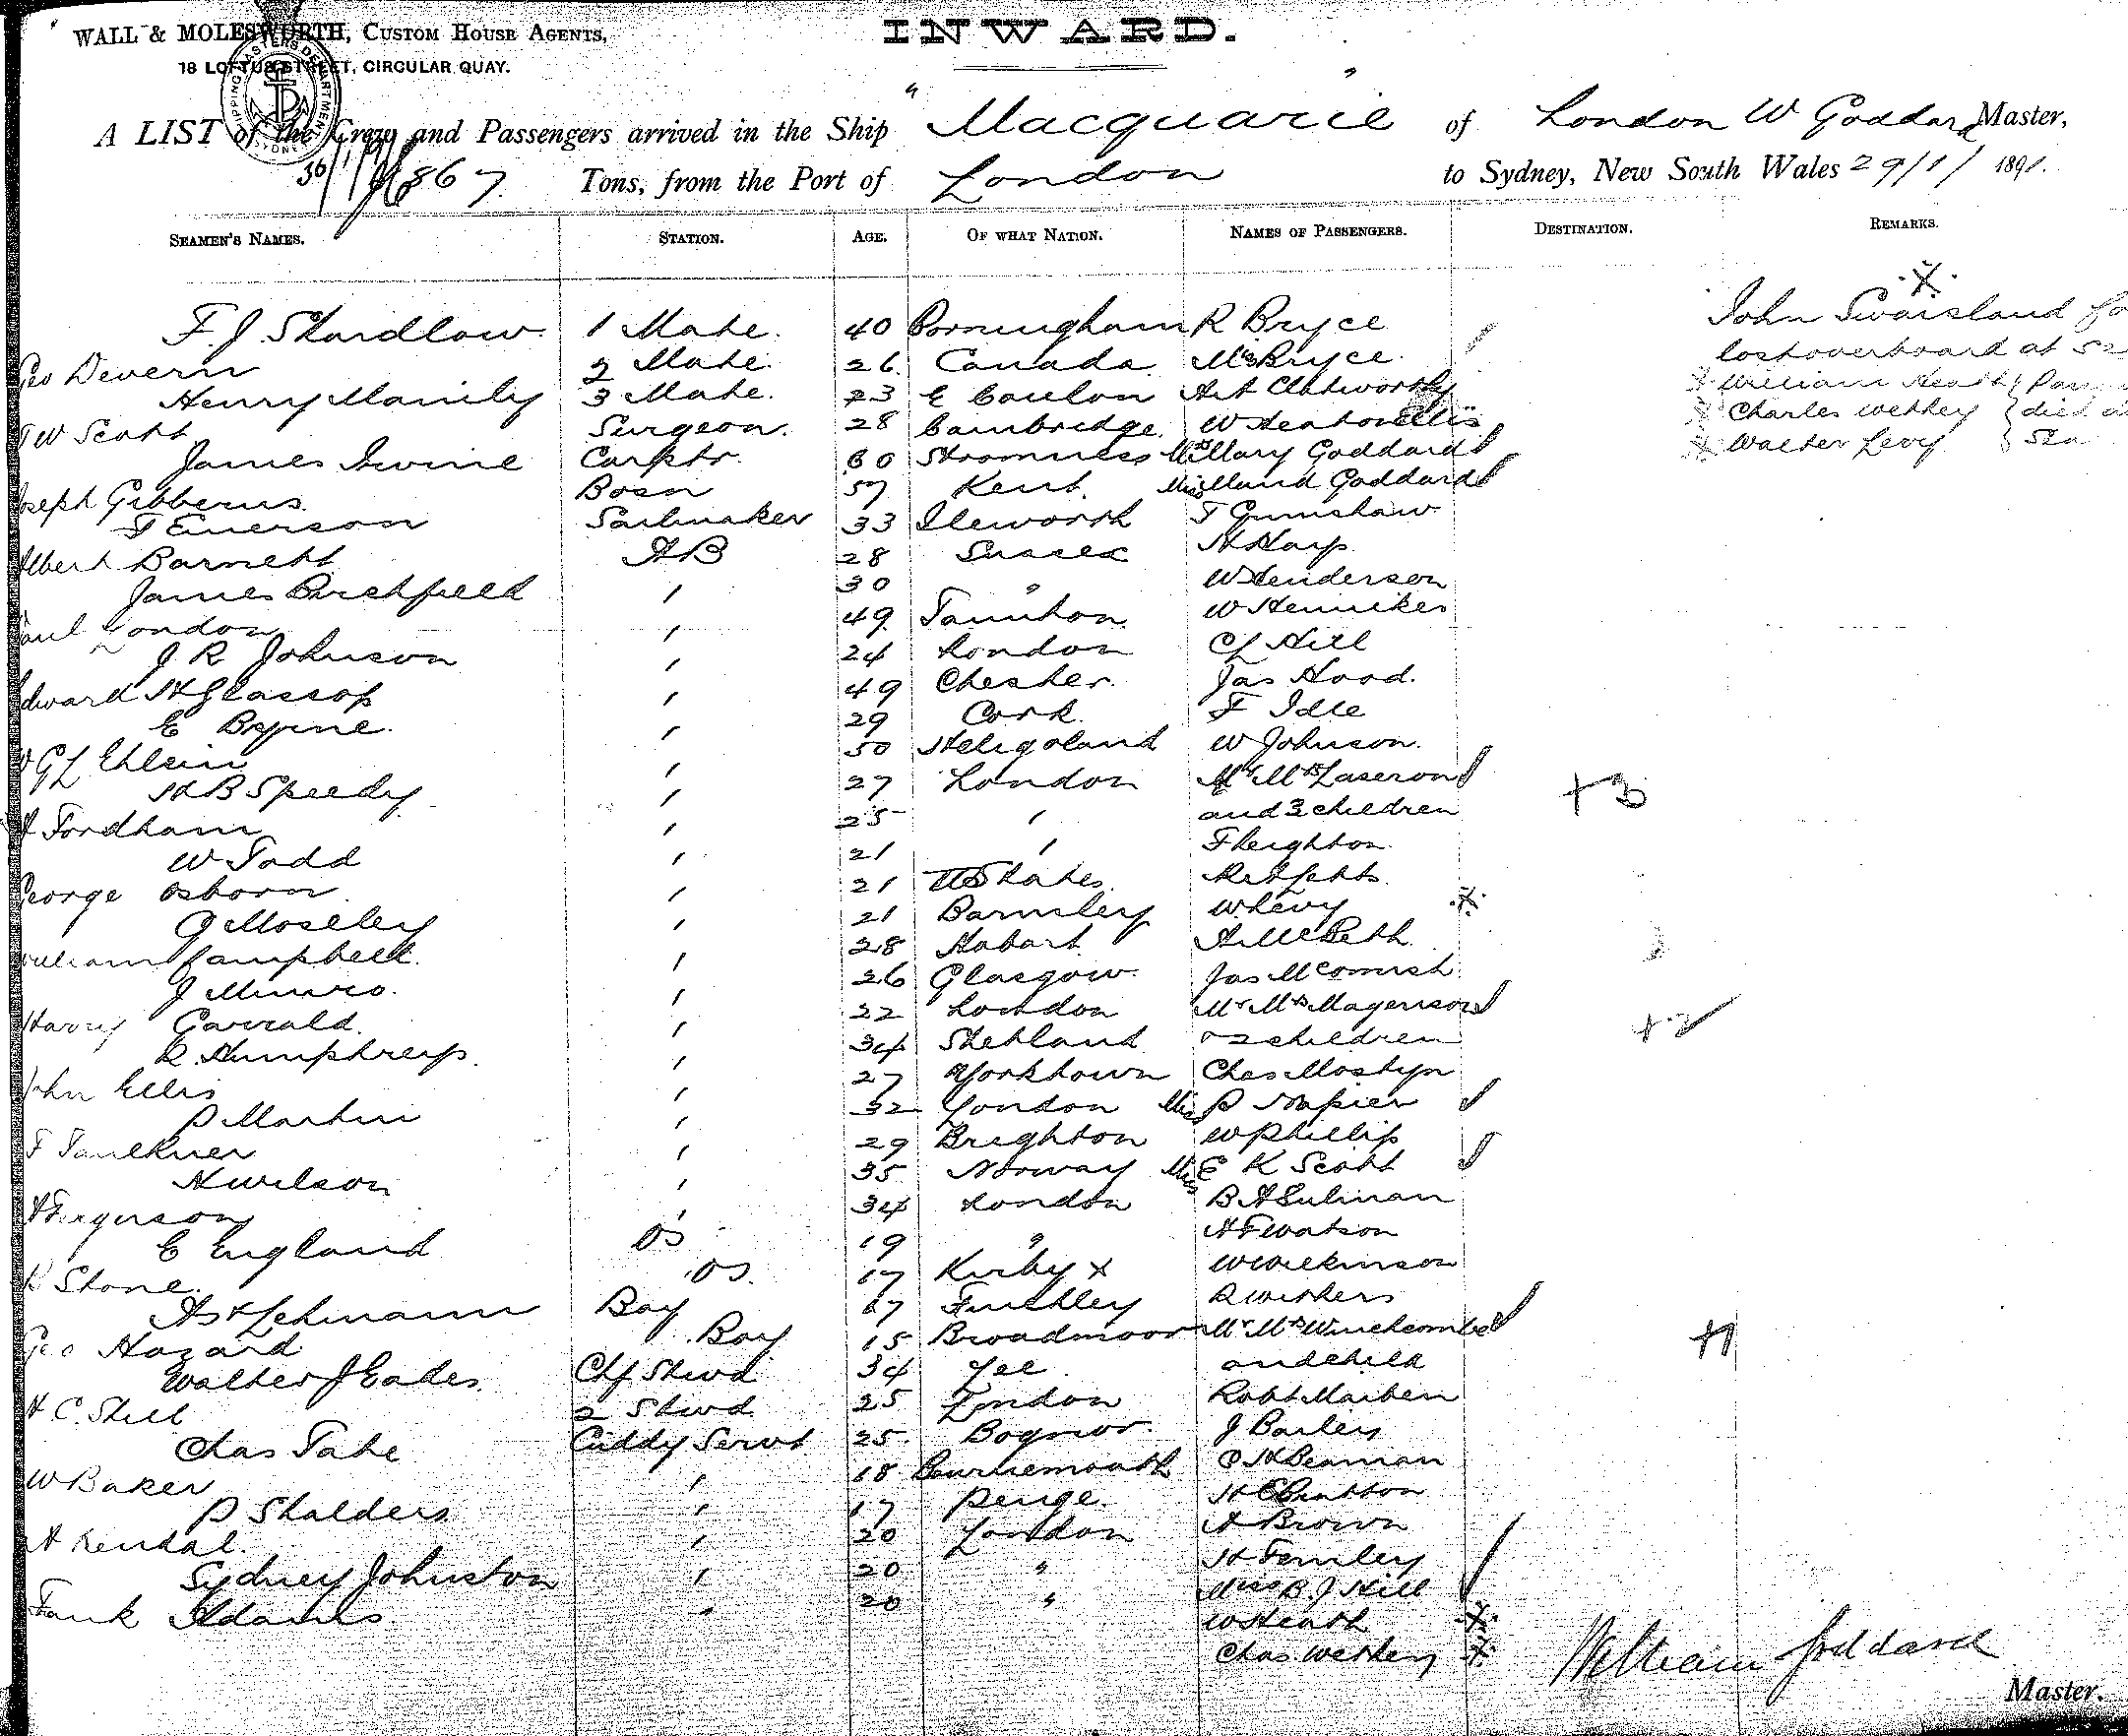 WALL & MOLESWORTH, CUSTOM HOUSE AGENTS,
18 LOFTUS STREET, CIRCULAR QUAY.
INWARD.
A LIST of the Crew and Passengers arrived in the Ship "Macquarie" of London W Goddard Master,
1867 Tons, from the Port of London to Sydney, New South Wales 29/1/ 1891.
SEAMEN'S NAMES. STATION. AGE. OF WHAT NATION. NAMES OF PASSENGERS. DESTINATION. REMARKS.
F. J. Shardlow 1 Mate. 40 Birmingham R Bryce John Swaisland
Geo Devern 2 Mate. 26 Canada Mrs Bryce. lost overboard at
Henry Mainly 3 Mate. 23 Art Chatworthy William Heath
W Scott Surgeon. 28 Cambridge. W Heaton Ellis Charles Wethey died at
James Irvine Carptr. 60 Stromness Mary Goddard Walter Levy Sea
Joseph Gibberns Bosn 57 Kent. Miss Maud Goddard
T Emerson Sailmaker 33 Isleworth T Grimshaw
Albert Barnett AB 28 Sussex H Harp
James Birchfield 30 " W Henderson
Paul London 49 Taunton W Henniker
J R Johnson 24 London C L Hill
Edward H Glassop 49 Chester. Jas Hood.
E Byrne. 29 Cork. F Idle
W G L Ehlein 50 Heligoland W Johnson.
H B Speedy 27 London Mr Mrs Laseron +3
H Fordham 25 and 3 children
W Todd 21 F Leighton
George Osborn 21 U States.
G Moseley 21 Barnsley W Levy
William Campbell. 28 Hobart A McBeth
J Munro. 26 Glasgow Jas McComish
Harry Garrald. 22 London Mr Mrs Magerison +2
R. Humphreys. 34 Shetland 2 children
John Ellis 27 Yorktown Chas Mostyn
P Martin 32 London Miss P Napier
F Faulkner 29 Brighton W Phillip
H Wilson 35 Norway Miss E K Scott
H Ferguson 34 London B A Sulman
C England OS 19 " H F Watson
R Stone OS. 17 Kirby x W Wilkinson
Lehmann Boy 17 Finchley R Withers
Geo Hazard Boy 15 Broadmoor Mr Mrs Winchcombe +1
Walter J Eades. Chf Stwd 34 Lee and child
H C. Still 2 Stwd 25 London Robt Maiben
Chas Tate Cuddy Servt 25 Bognor. J Barley
W Baker 18 Bournemouth C H Beaman
P Shalders 17 Penge. H E Bratton
A Kendal. 20 London A Brown
Sydney Johnston 20 " H Femley
Frank Adams 20 " Miss B. J Hill
W Heath
Chas Wethey
William Goddard
Master.